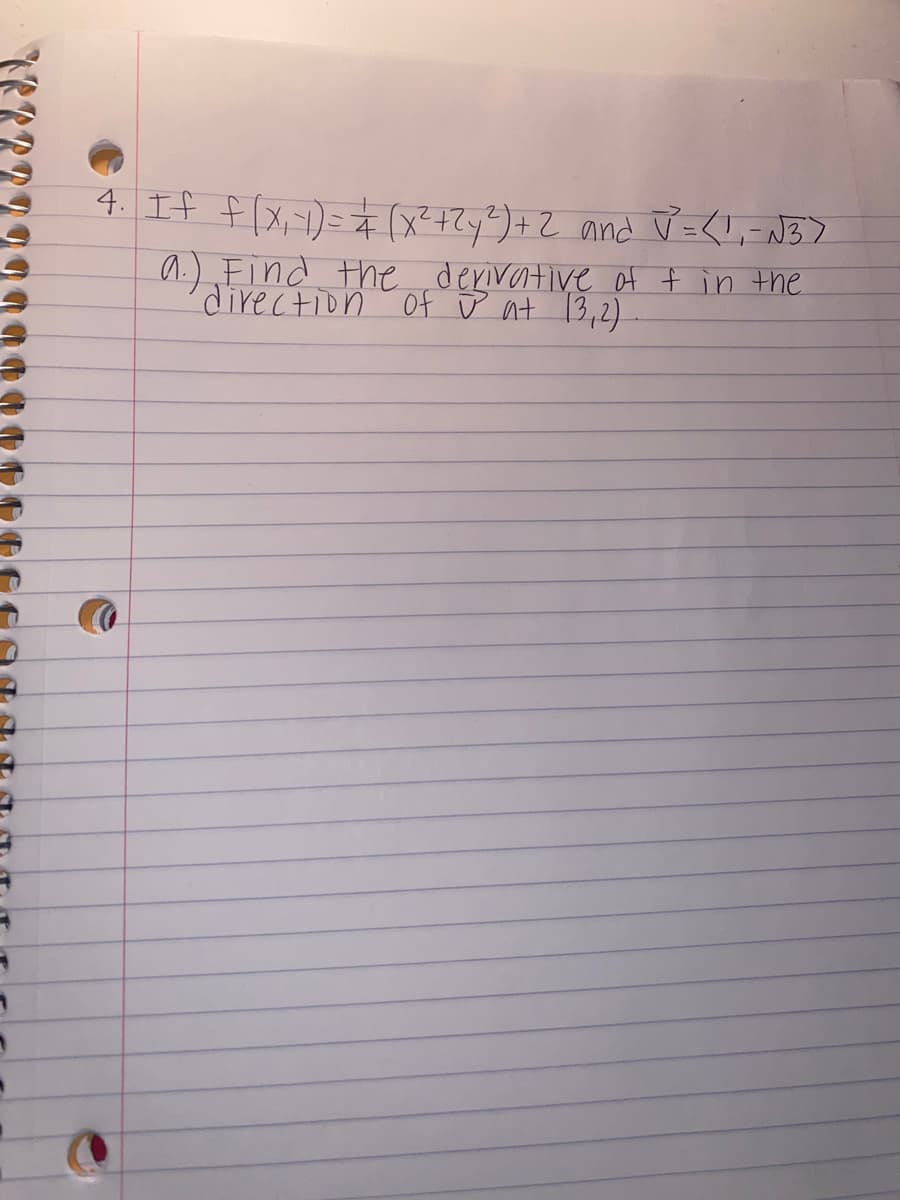 4. If f(x,-1)=1/4 (x²+2y²)+2 and v⃗=<1,-√3>
a.) Find the derivative of f in the
direction of v⃗ at (3,2).